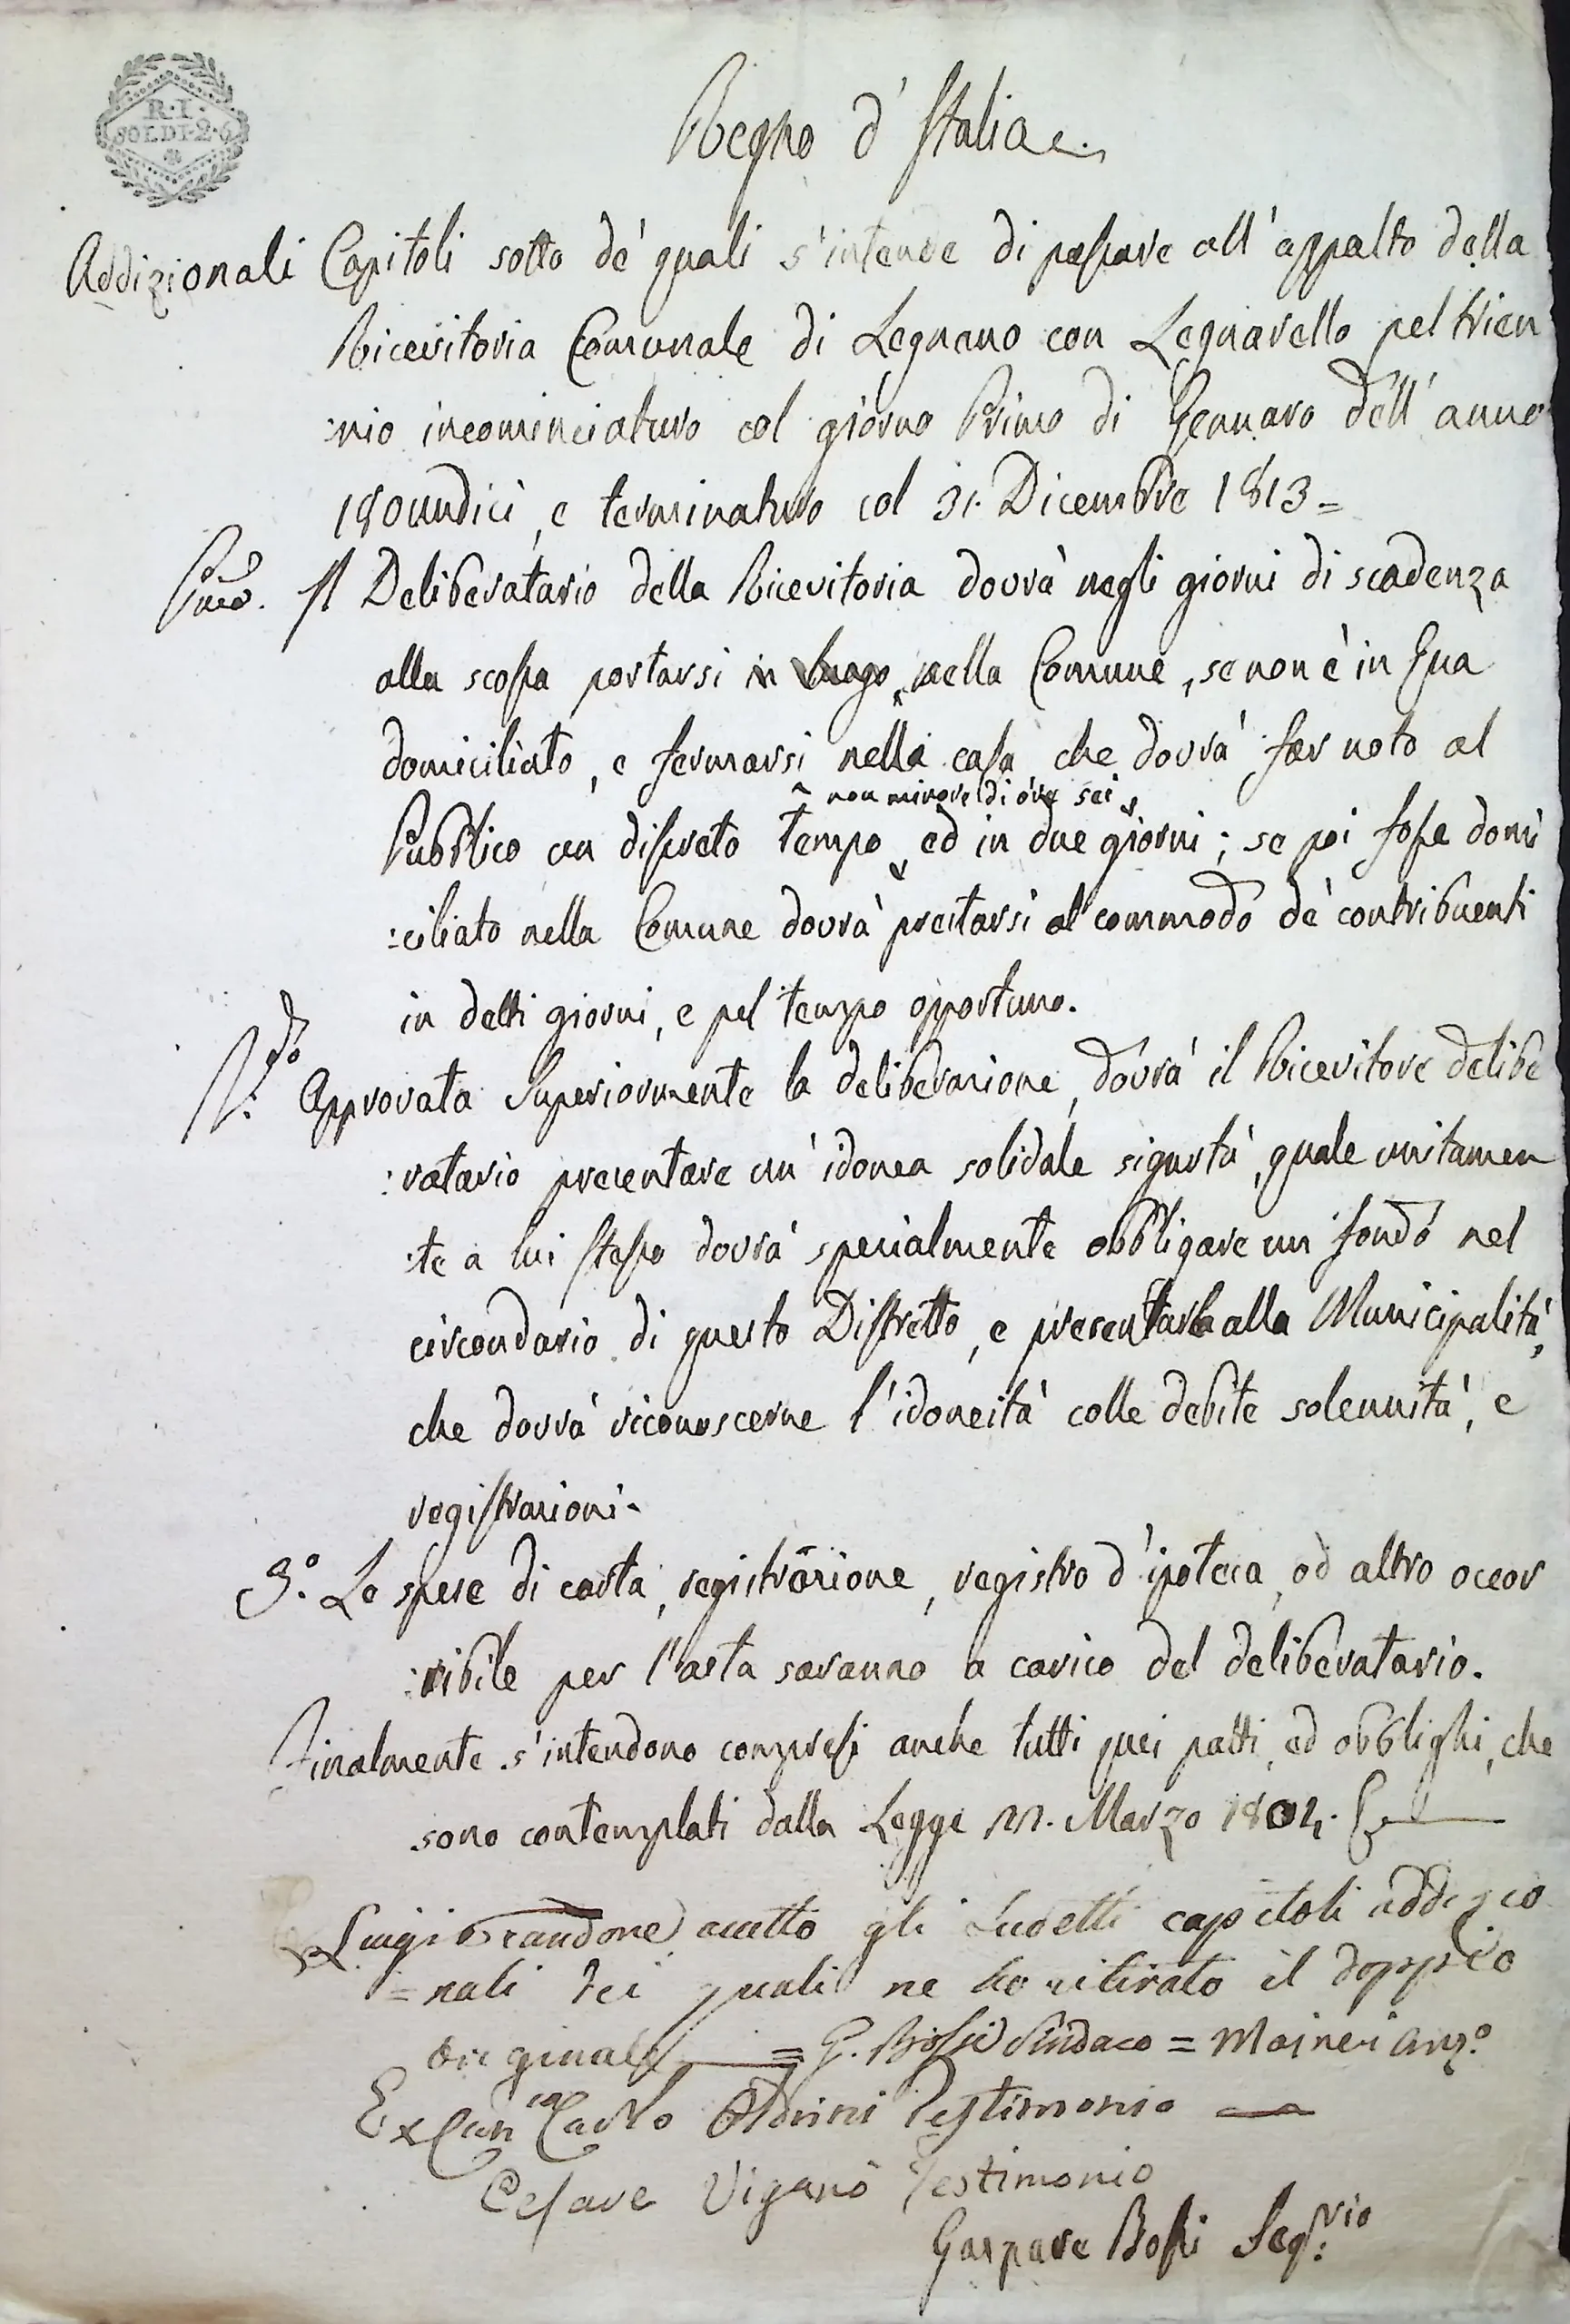 R. I.
SOLDI. 2. 6
Regno d'Italia.
Addizionali Capitoli sotto de' quali s'intende di passare all'appalto della
Ricevitoria Comunale di Legnano con Legnarello pel trien
:nio incominciaturo col giorno Primo di Gennaro dell'anno
180undici, e terminaturo col 31. Dicembre 1813=
P.mo Il Deliberatario della Ricevitoria dovrà negli giorni di scadenza
alla scossa portarsi in luogo nella Comune, se non è in Essa
domiciliato, e fermarsi nella casa che dovrà far noto al
non minore di ore sei
Pubblico un discreto tempo ed in due giorni; se poi fosse domi
:ciliato nella Comune dovrà prestarsi al commodo de' contribuenti
in detti giorni, e pel tempo opportuno.
S.do Approvata Superiormente la deliberazione, dovrà il Ricevitore delibe
:ratario presentare un'idonea solidale sigurtà, quale unitamen
:te a lui stesso dovrà specialmente obbligare un fondo nel
circondario di questo Distretto, e presentarla alla Municipalità,
che dovrà riconoscerne l'idoneità colle debite solennità, e
registrazioni.
3.° Le spese di carta, registrazione, registro d'ipoteca, od altro occor
:ribile per l'asta saranno a carico del deliberatario.
Finalmente s'intendono compresi anche tutti quei patti, ed obblighi, che
sono contemplati dalla Legge 22. Marzo 1804.
Luigi Brandone accetto gli sudetti capitoli addizio
=nali dei quali ne ho ritirato il doppio
originale = G. Bossi Sindaco = Maineri Anz.°
Carlo Testimonio
Cesare Viganò Testimonio
Gaspare Bossi Seg.rio